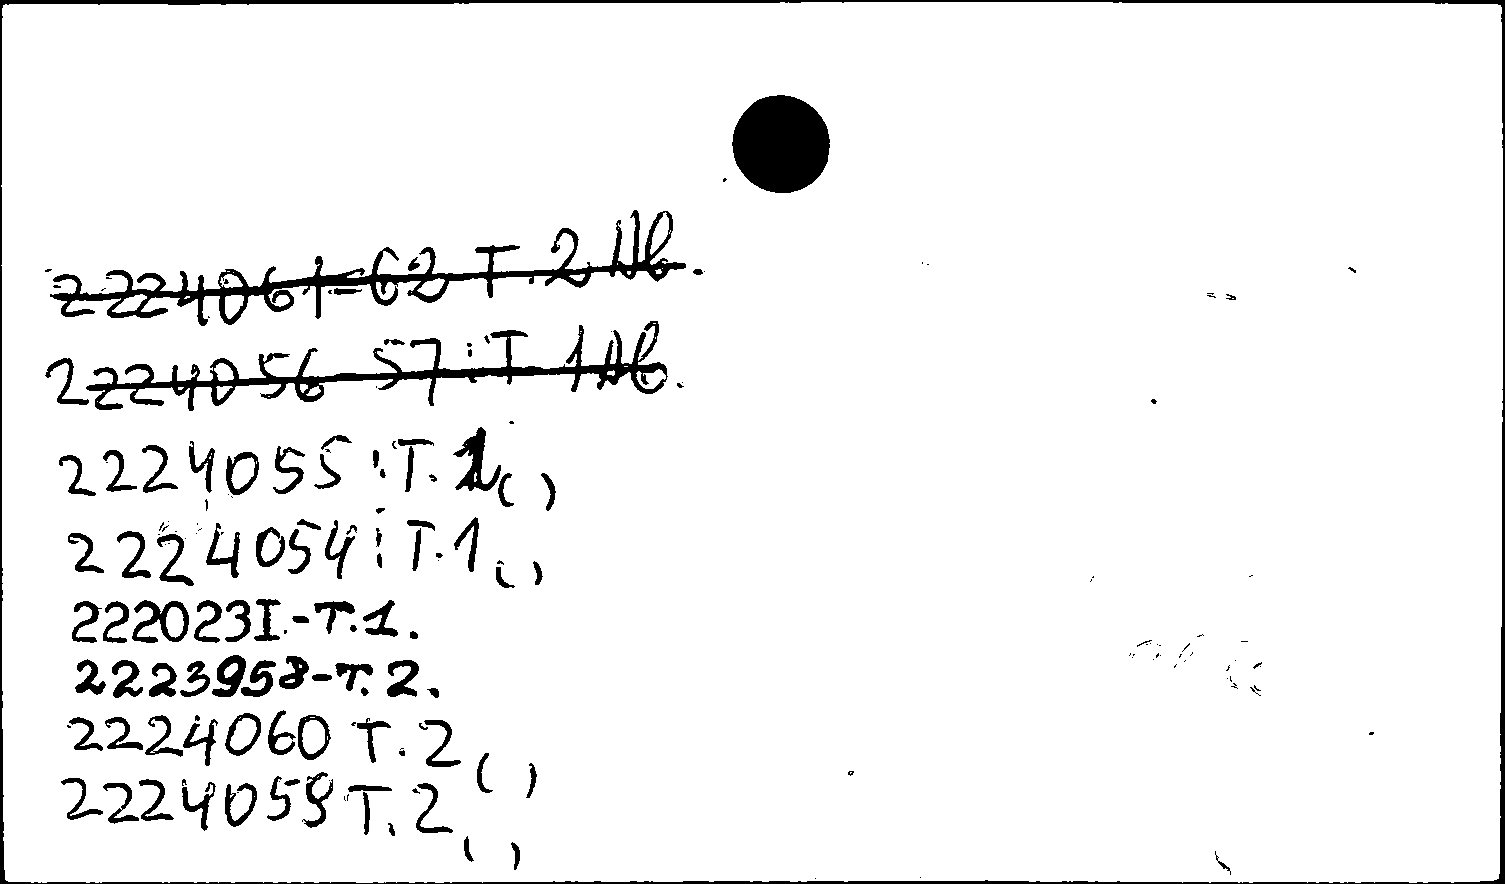 2224061-62 Т.2 Аб.
2224056-57 : Т-1 Аб.
2224055 : Т. 1 ( )
2224054 : Т.1 ( )
222023I.-Т.1.
2223958-Т.2.
2224060 Т.2 ( )
2224059 Т.2 ( )